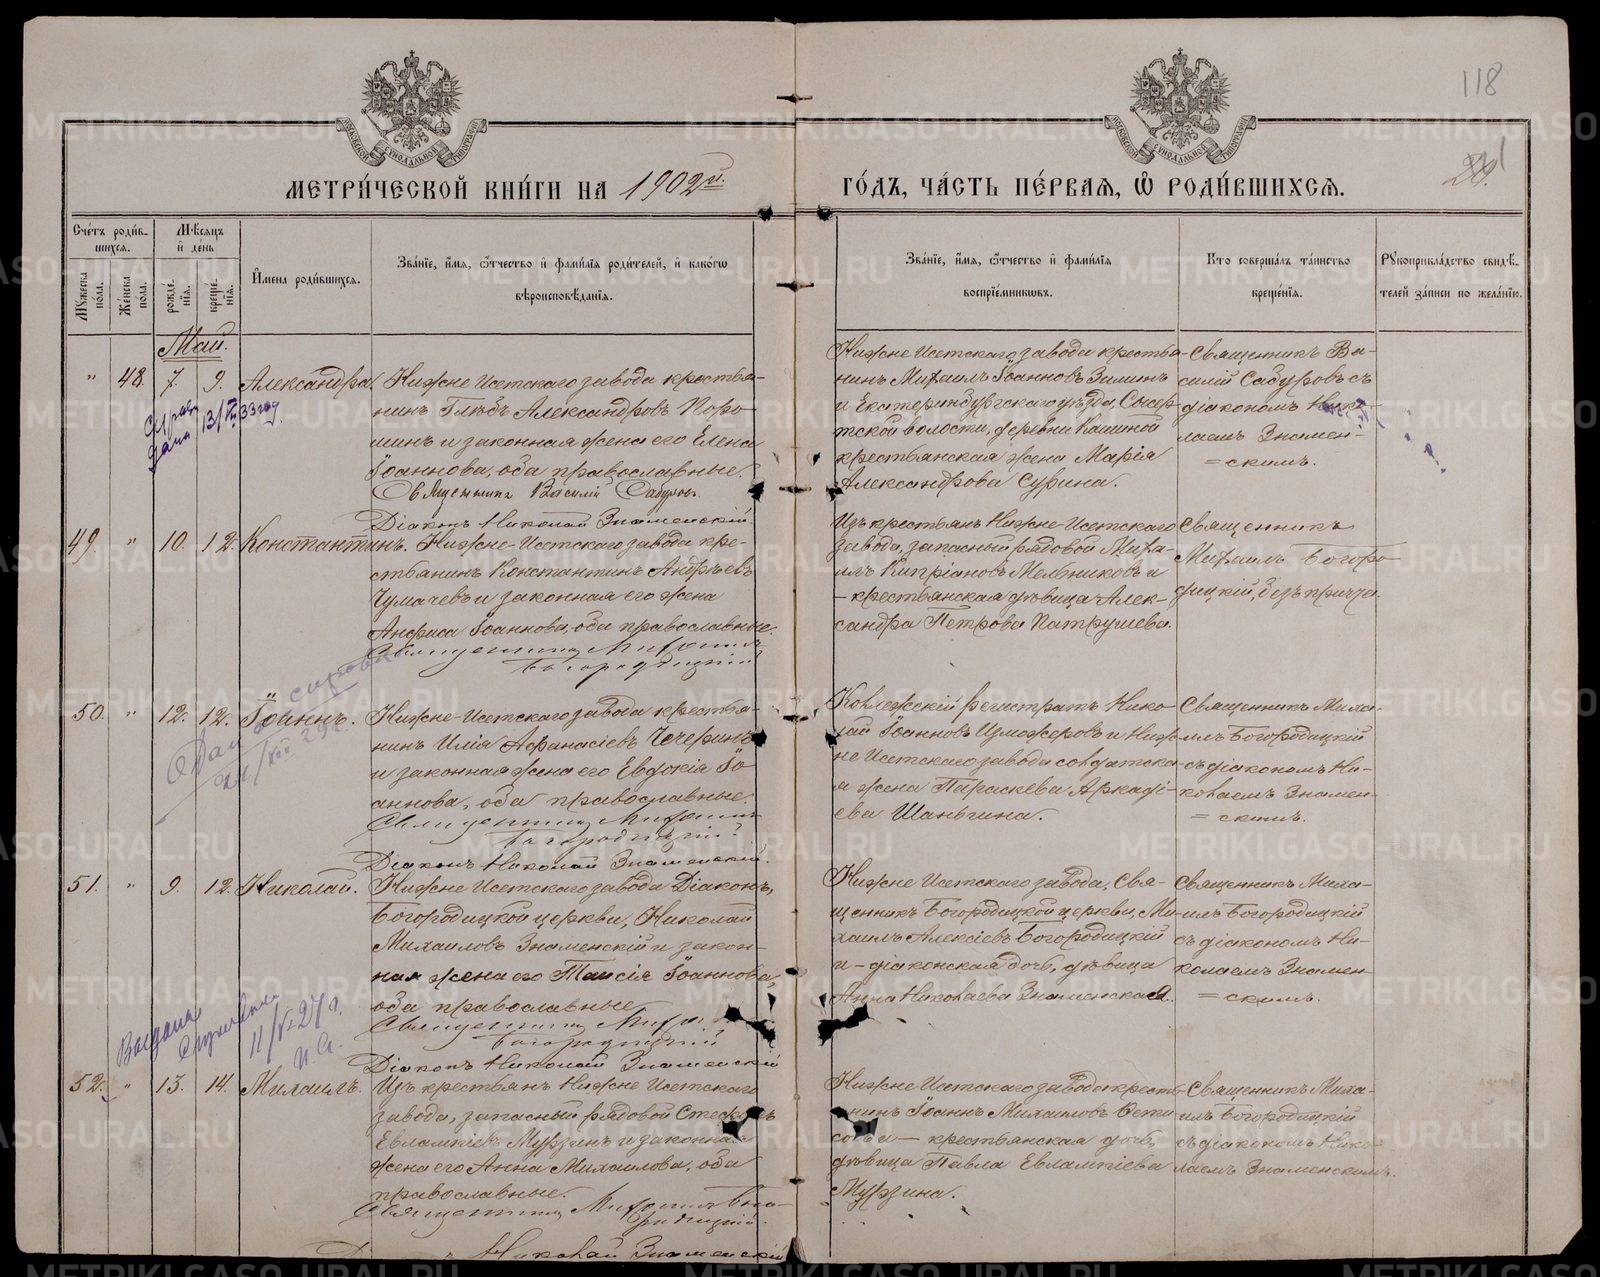 118
МЕТРИ́ЧЕСКОЙ КНИ́ГИ НА 1902й.
ГО́ДЪ, ЧА́СТЬ ПЕ́РВАЯ, Ѡ РОДИ́ВШИХСЯ.
Сче́тъ роди́в-
шихся.
Мѣ́сяцъ
и́ де́нь
Му́жеска по́ла.
Же́нска по́ла.
рожде́нїя.
креще́нїя.
И́мена роди́вшихся.
Зва́нїе, и́мя, ѻ́тчество и́ фами́лїя роди́телей, и́ како́гѡ
вѣроисповѣ́данїя.
Зва́нїе, и́мя, ѻ́тчество и́ фами́лїя
воспрїе́мникѡвъ.
Кто соверша́лъ та́инство
креще́нїя.
Рꙋкоприкла́дство свидѣ́-
телей за́писи по жела́нїю.
Май.
" 48. 7. 9. Александра.
Нижне Исетскаго завода крестья-
нинъ Глѣбъ Александровъ Поро-
шинъ и законная жена его Елена
Іоаннова, оба православные.
Священникъ Василій Сабуровъ.
Діаконъ Николай Знаменскій
Нижне Исетскаго завода крестья-
нинъ Михаилъ Іоанновъ Зиминъ
и Екатеринбургскаго уѣзда, Сысер-
тской волости, деревни Кашиной
крестьянская жена Марія
Александрова Сурина.
Священникъ Ва-
силій Сабуровъ съ
діакономъ Нико-
лаемъ Знамен-
=скимъ.
13/ 33 год.
49. " 10. 12. Константинъ.
Нижне-Исетскаго завода кре-
стьянинъ Константинъ Андреевъ
Чумачевъ и законная его жена
Анфиса Іоаннова, оба православные.
Священникъ Михаилъ
Богородицкій
Изъ крестьянъ Нижне-Исетскаго
завода, запасный рядовой Миха-
илъ Кипріановъ Мельниковъ и
-крестьянская дѣвица Алек-
сандра Петрова Патрушева.
Священникъ
Михаилъ Богоро-
дицкій, безъ причта.
50. " 12. 12. Іоаннъ.
Нижне-Исетскаго завода крестья-
нинъ Илія Афанасіевъ Чечеринъ
и законная жена его Евдокія Іо-
аннова, оба православные.
Священникъ Михаилъ
Богородицкій
Діаконъ Николай Знаменскій.
Коллежскій регистратъ Нико-
лай Іоанновъ Изможеровъ и Ниж-
не Исетскаго завода солдатска-
я жена Параскева Аркаді-
ева Шаньгина.
Священникъ Миха-
илъ Богородицкій
съ діакономъ Ни-
колаемъ Знамен-
=скимъ.
51. " 9. 12. Николай.
Нижне Исетскаго завода Діаконъ,
Богородицкой церкви, Николай
Михаиловъ Знаменскій и закон-
ная жена его Таисія Іоаннова,
оба православные
Священникъ Михаилъ
Богородицкій
Діаконъ Николай Знаменскій
Нижне Исетскаго завода, Свя-
щенникъ Богородицкой церкви, Ми-
хаилъ Алексіевъ Богородицкій
и - діаконская дочь, дѣвица
Анна Николаева Знаменская.
Священникъ Миха-
илъ Богородицкій
съ діакономъ Ни-
колаемъ Знамен-
=скимъ.
Выдана
11/V-27 г.
52. " 13. 14. Михаилъ.
Изъ крестьянъ Нижне Исетскаго
завода, запасный рядовой Стефанъ
Евлампіевъ Мурзинъ и законная
жена его Анна Михаилова, оба
православные.
Священникъ Михаилъ Бого-
родицкій.
Николай Знаменскій
Нижне Исетскаго завода кресть-
янинъ Іоаннъ Михаиловъ
и - крестьянская дочь,
дѣвица Павла Евлампіева
Мурзина.
Священникъ Миха-
илъ Богородицкій
съ діакономъ Нико-
лаемъ Знаменскимъ.
METRIKI.GASO-URAL.RU